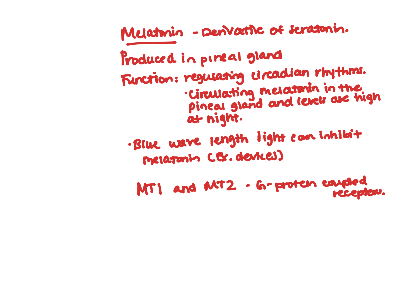 Melatonin - Derivative of seratonin.
Produced in pineal gland
Function: regulating circadian rhythms.
· Circulating melatonin in the
pineal gland and levels are high
at night.
· Blue wave length light can inhibit
melatonin (Ex. devices)
MT1 and MT2 - G-protein coupled
receptors.